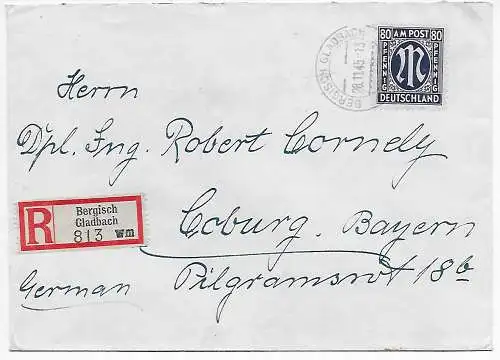 80 AM POST 80
PFENNIG PFENNIG
M
DEUTSCHLAND
BERGISCH GLADBACH
Herrn
Dpl. Ing. Robert Cornely
R Bergisch
Gladbach
813 wm
Coburg. Bayern
German Pilgramsrot 18b